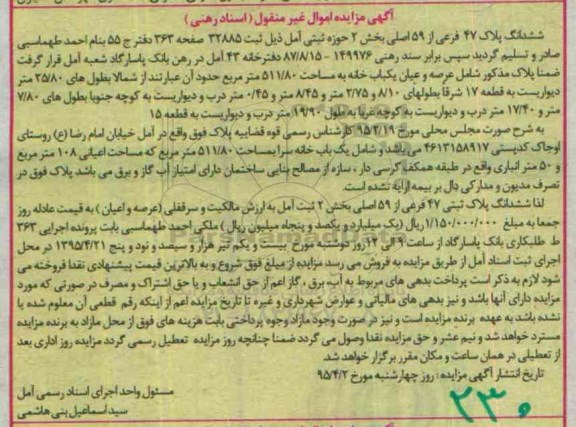 آگهی مزایده اموال غیر منقول (اسناد رهنی)
ششدانگ پلاک ۴۷ فرعی از ۵۹ اصلی بخش ۲ حوزه ثبتی آمل ذیل ثبت ۳۲۸۸۵ صفحه ۳۶۳ دفتر ج ۵۵ بنام احمد طهماسبی
صادر و تسلیم گردید سپس برابر سند رهنی ۱۴۹۹۷۶ - ۸۷/۸/۱۵ دفترخانه ۴۳ آمل در رهن بانک پاسارگاد شعبه آمل قرار گرفت
ضمنا پلاک مذکور شامل عرصه و عیان یکباب خانه به مساحت ۵۱۱/۸۰ متر مربع حدود آن عبارتند از شمالا بطول های ۲۵/۸۰ متر
دیواریست به قطعه ۱۷ شرقا بطولهای ۸/۱۰ و ۲/۷۵ متر و ۸/۴۵ متر و ۰/۴۵ متر درب و دیواریست به کوچه جنوبا بطول های ۷/۸۰
متر و ۱۷/۴۰ متر درب و دیواریست به کوچه غربا به طول ۱۹/۹۰ متر درب و دیواریست به قطعه ۱۵
به شرح صورت مجلس محلی مورخ ۹۵/۲/۱۹ کارشناس رسمی قوه قضاییه پلاک فوق واقع در آمل خیابان امام رضا (ع) روستای
اوجاک کدپستی ۴۶۱۳۱۵۸۹۱۷ می باشد و شامل یک باب خانه سرا بمساحت ۵۱۱/۸۰ متر مربع که مساحت اعیانی ۱۰۸ متر مربع
و ۵۰ متر انباری واقع در طبقه همکف کرسی دار، سازه از مصالح بنایی ساختمان دارای امتیاز آب گاز و برق می باشد پلاک فوق در
تصرف مدیون و مدارکی دال بر بیمه ارایه نشده است.
لذا ششدانگ پلاک ثبتی ۴۷ فرعی از ۵۹ اصلی بخش ۲ ثبت آمل به ارزش مالکیت و سرقفلی (عرصه و اعیان) به قیمت عادله روز
جمعا به مبلغ ۱/۱۵۰/۰۰۰/۰۰۰ ریال (یک میلیارد و یکصد و پنجاه میلیون ریال) ملکی احمد طهماسبی بابت پرونده اجرایی ۳۶۳
ط طلبکاری بانک پاسارگاد از ساعت ۹ الی ۱۲ روز دوشنبه مورخ بیست و یکم تیر هزار و سیصد و نود و پنج ۱۳۹۵/۴/۲۱ در محل
اجرای ثبت اسناد آمل از طریق مزایده به فروش می رسد مزایده از مبلغ فوق شروع و به بالاترین قیمت پیشنهادی نقدا فروخته می
شود لازم به ذکر است پرداخت بدهی های مربوط به آب، برق، گاز اعم از حق انشعاب و یا حق اشتراک و مصرف در صورتی که مورد
مزایده دارای آنها باشد و نیز بدهی های مالیاتی و عوارض شهرداری و غیره تا تاریخ مزایده اعم از اینکه رقم قطعی آن معلوم شده یا
نشده باشد به عهده برنده مزایده است و نیز در صورت وجود مازاد وجوه پرداختی بابت هزینه های فوق از محل مازاد به برنده مزایده
مسترد خواهد شد و نیم عشر و حق مزایده نقدا وصول می گردد ضمنا چنانچه روز مزایده تعطیل رسمی گردد مزایده روز اداری بعد
از تعطیلی در همان ساعت و مکان مقرر برگزار خواهد شد.
تاریخ انتشار آگهی مزایده: روز چهارشنبه مورخ ۹۵/۴/۲
مسئول واحد اجرای اسناد رسمی آمل
سید اسماعیل بنی هاشمی
۲۳۰